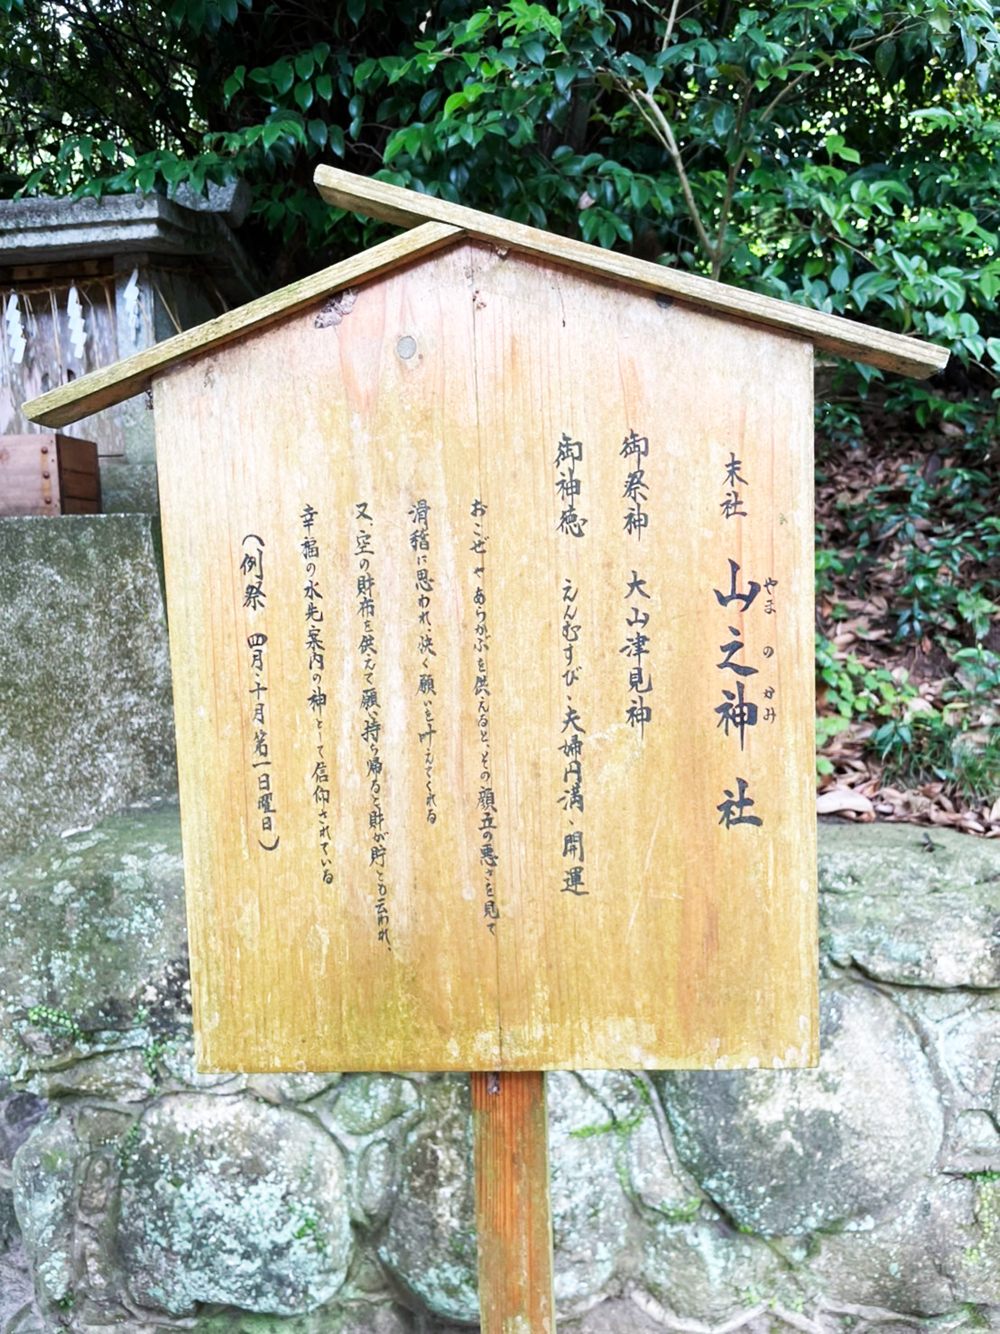 末社 山之神社
やま の かみ
御祭神 大山津見神
御神徳 えんむすび、夫婦円満、開運
おこぜやあらかぶを供えると、その顔立の悪さを見て
滑稽に思われ、快く願いを叶えてくれる
又、空の財布を供えて願い持ち帰ると財が貯とも云われ、
幸福の水先案内の神として信仰されている
(例祭 四月・十月 第一日曜日)